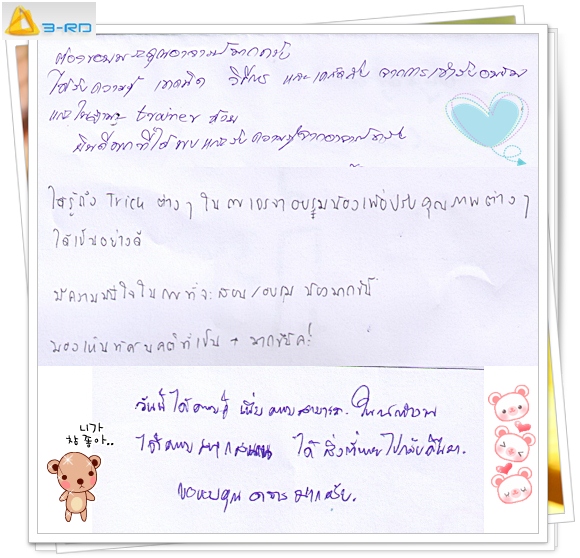 3-RD
ต้องขอขอบพระคุณอาจารย์มากครับ
ได้รับความรู้ เทคนิค วิธีการ และเคล็ดลับ จากการเข้ารับอบรม
และในฐานะ trainer ด้วย
ยินดีมากที่ได้พบและรับความรู้จากอาจารย์ครับ
ได้รู้ถึง Trick ต่างๆ ในการเจรจา อบรมน้องเพื่อปรับคุณภาพต่างๆ
ได้เป็นอย่างดี
มีความมั่นใจในการที่จะสอน/อบรม น้องมากขึ้น
มองเห็นทัศนคติที่เป็น + มากขึ้นค่ะ
วันนี้ ได้ความรู้ เพิ่ม ความสามารถ. ในการทำงาน
ได้ความสนุกสนาน ได้ สิ่งที่หายไปกลับคืนมา.
ขอบคุณ อาจารย์ มากครับ.
니가
참 좋아..